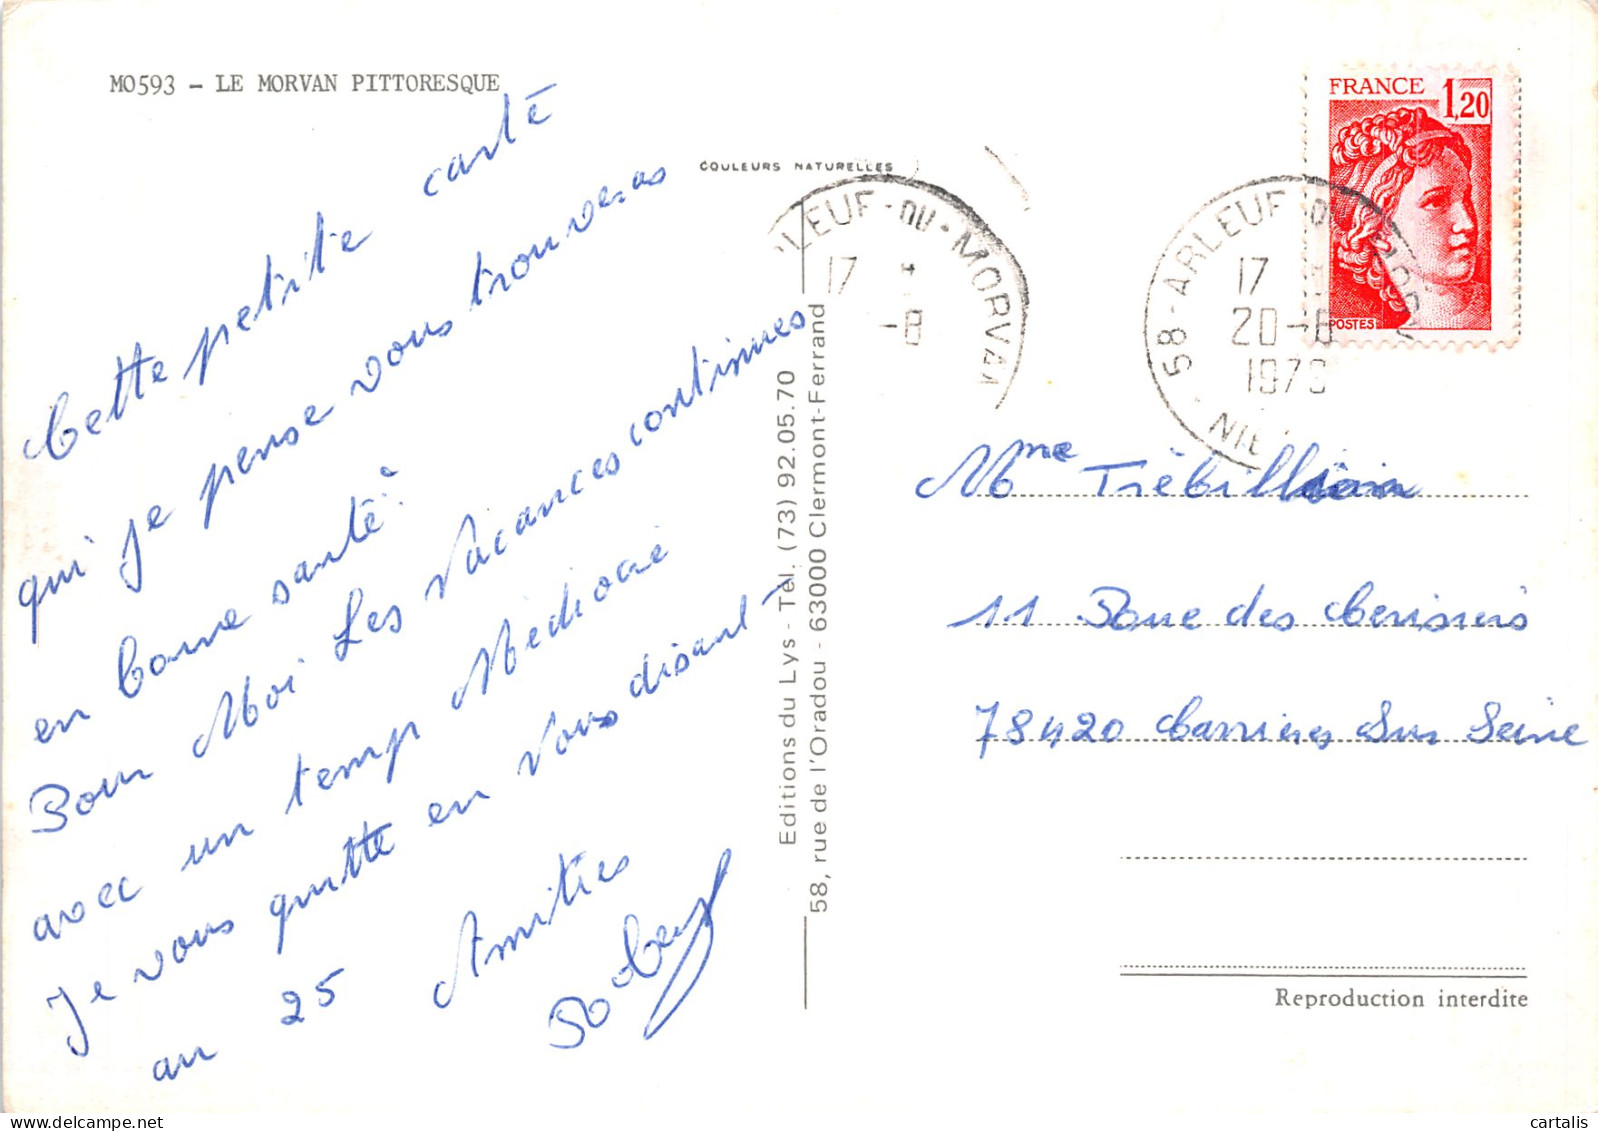 MO593 - LE MORVAN PITTORESQUE
Cette petite carte
qui je pense vous trouveras
en bonne santé
Pour Moi Les Vacances continues
avec un temp Mediocre
Je vous quitte en vous disant
au 25 Amities
COULEURS NATURELLES
Editions du Lys - Tél. (73) 92.05.70
58, rue de l'Oradou - 63000 Clermont-Ferrand
LEUF-DU-MORVAN
17
-8
58-ARLEUF DU MORV
17
20-8
197
NIE
FRANCE
1,20
POSTES
Mme
11 Rue des Cerisiers
78420 Carrieres Sur Seine
Reproduction interdite
cartalis